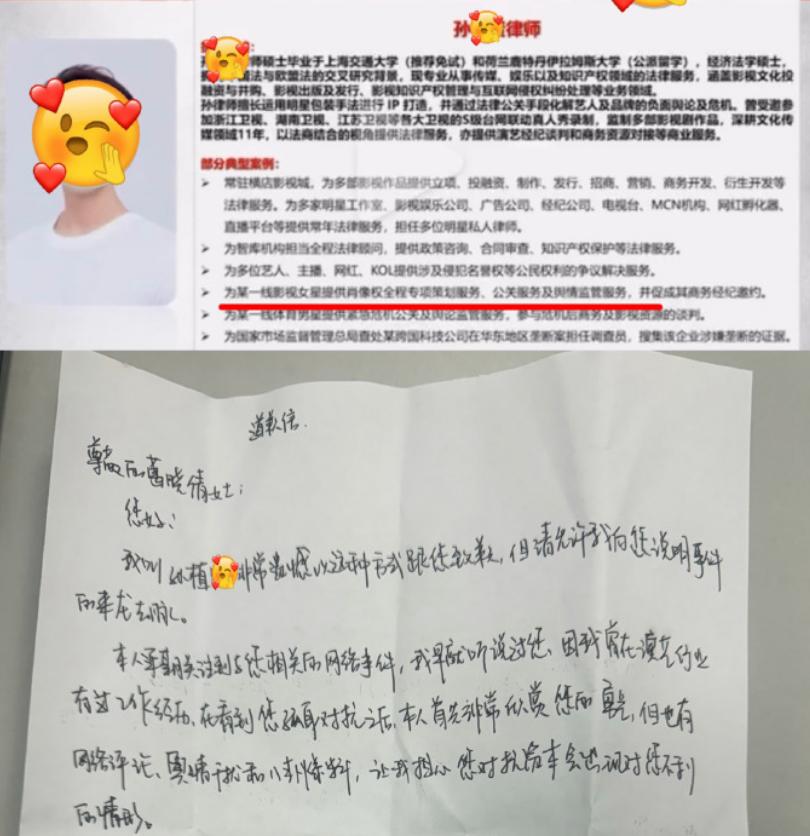 孙 律师
师硕士毕业于上海交通大学（推荐免试）和荷兰鹿特丹伊拉姆斯大学（公派留学），经济法学硕士，
法与欧盟法的交叉研究背景。现专业从事传媒、娱乐以及知识产权领域的法律服务，涵盖影视文化投
融资与并购、影视出版及发行、影视知识产权管理与互联网侵权纠纷处理等业务领域。
孙律师擅长运用明星包装手法进行 IP 打造，并通过法律公关手段化解艺人及品牌的负面舆论及危机。曾受邀参
加浙江卫视、湖南卫视、江苏卫视等各大卫视的S级台网联动真人秀录制，监制多部影视剧作品，深耕文化传
媒领域11年，以法商结合的视角提供法律服务，亦提供演艺经纪谈判和商务资源对接等商业服务。
部分典型案例：
➤ 常驻横店影视城，为多部影视作品提供立项、投融资、制作、发行、招商、营销、商务开发、衍生开发等
法律服务。为多家明星工作室、影视娱乐公司、广告公司、经纪公司、电视台、MCN机构、网红孵化器、
直播平台等提供常年法律服务，担任多位明星私人律师。
➤ 为智库机构担当全程法律顾问，提供政策咨询、合同审查、知识产权保护等法律服务。
➤ 为多位艺人、主播、网红、KOL提供涉及侵犯名誉权等公民权利的争议解决服务。
➤ 为某一线影视女星提供肖像权全程专项策划服务、公关服务及舆情监管服务，并促成其商务经纪邀约。
➤ 为某一线体育男星提供紧急危机公关及舆论监管服务，参与危机后商务及影视资源的谈判。
➤ 为国家市场监督管理总局查处某跨国科技公司在华东地区垄断案担任调查员，搜集该企业涉嫌垄断的证据。
道歉信.
尊敬的葛晓倩女士：
您好：
我叫孙植 非常遗憾以这种方式跟您致歉，但请允许我向您说明事件
的来龙去脉。
本人早期关注到与您相关的网络事件，我早就听说过您、因我曾在演艺行业
有过工作经历、在看到您 对抗之后、本人首先非常欣赏您的勇气，但也有
网络评论、舆情干扰和八卦爆料，让我担心您对抗 会出现对您不利
的情形。